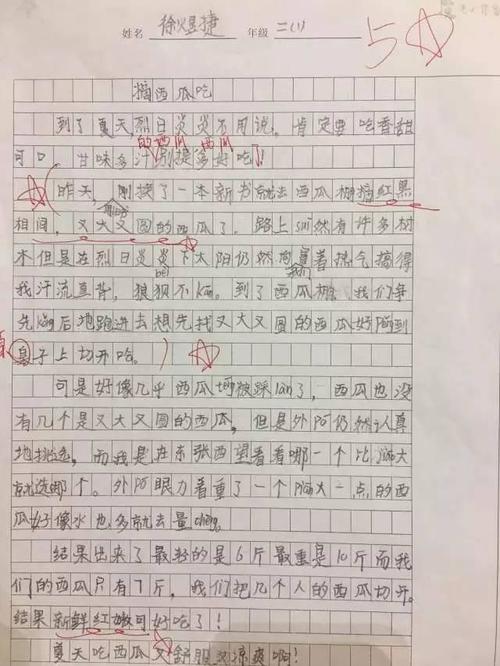 姓名 徐煜捷 年级 二(1)
5
摘西瓜吃
到了夏天,烈日炎炎不用说。肯定要吃香甜
的西瓜 西瓜
可口,甘味多汁别提多好吃!
昨天,刚换了一本新书就去西瓜棚摘红黑
相间,又大又圆的西瓜了。路上sui然有许多树
木但是在烈日炎炎下太阳仍然冒着热气搞得
我们
我汗流直背,狼狈不kan。到了西瓜棚,我们争
先kǒng后地跑进去想先找又大又圆的西瓜好
桌子上切开吃。
可是好像几乎西瓜都被踩lan了,西瓜也没
有几个是又大又圆的西瓜,但是外Pó仍然认真
地挑选,而我是在东张西望看看哪一个比
就选那个。外Pó眼力看重了一个大一点的西
瓜好像水也多就去量chēng。
结果出来了最轻的是6斤最重是10斤而我
们的西瓜只有7斤,我们把几个人的西瓜切开。
结果新鲜红嫩可好吃了!
夏天吃西瓜又舒服又凉爽啊!